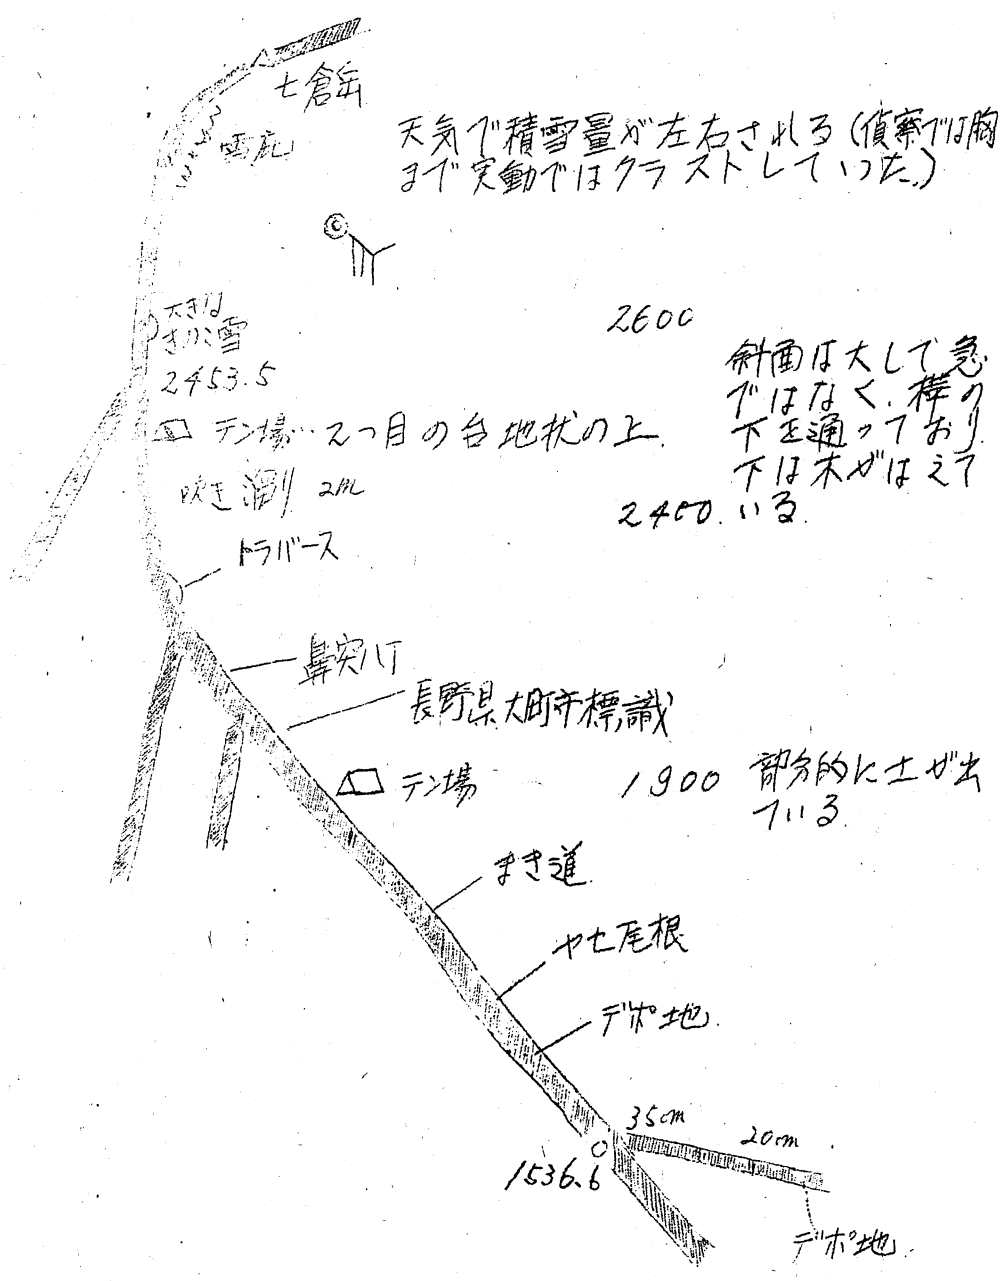 七倉岳
雪庇
天気で積雪量が左右される(偵察では胸
まで実動ではクラストしていった。)
大きな
きのこ雪
2453.5
2600
斜面は大して急
ではなく、樺の
下を通っており
下は木がはえて
いる
テン場…2つ目の台地状の上
吹き溜り 2m
2400
トラバース
鼻突八丁
長野県大町市標識
テン場
1900
部分的に土が出
ている
まき道
ヤセ尾根
デポ地
35cm
20cm
1536.6
デポ地